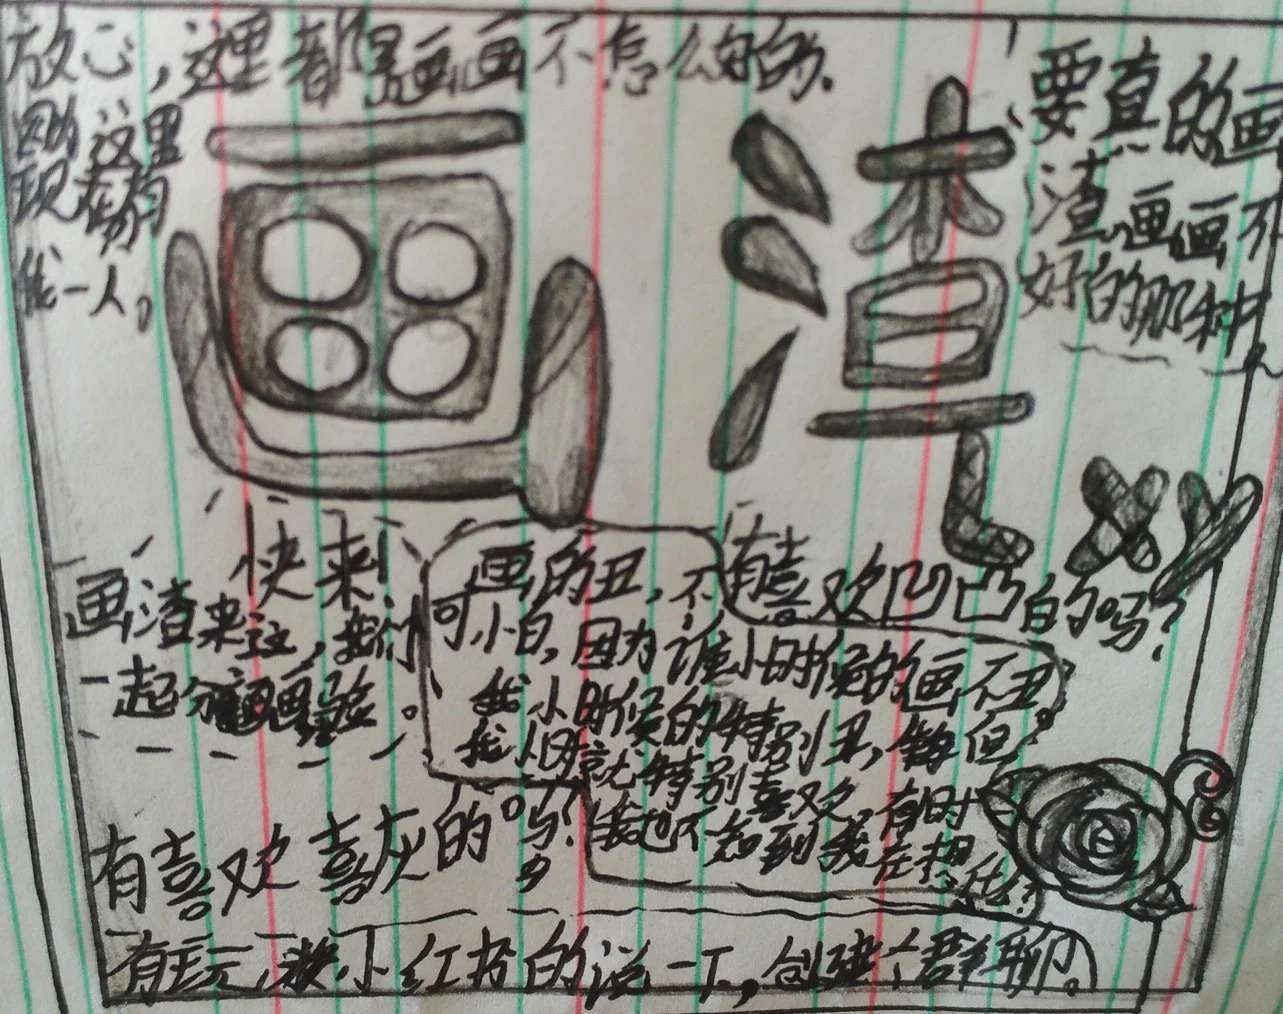 放心,这里都是画画不怎么好的.
这里
一人。
画渣
要真的画
渣,画画不
好的那种
xy
快来!
画渣来这,我们
一起分
画的丑,不
可小曰,因为谁小时候的画不丑,
我小时候的特别丑,每但
就特别喜欢,有时
我也不知到我在想什么?
有喜欢凹凸的吗?
有喜欢喜灰的吗?
有玩小红书的说一下,创建个群聊。